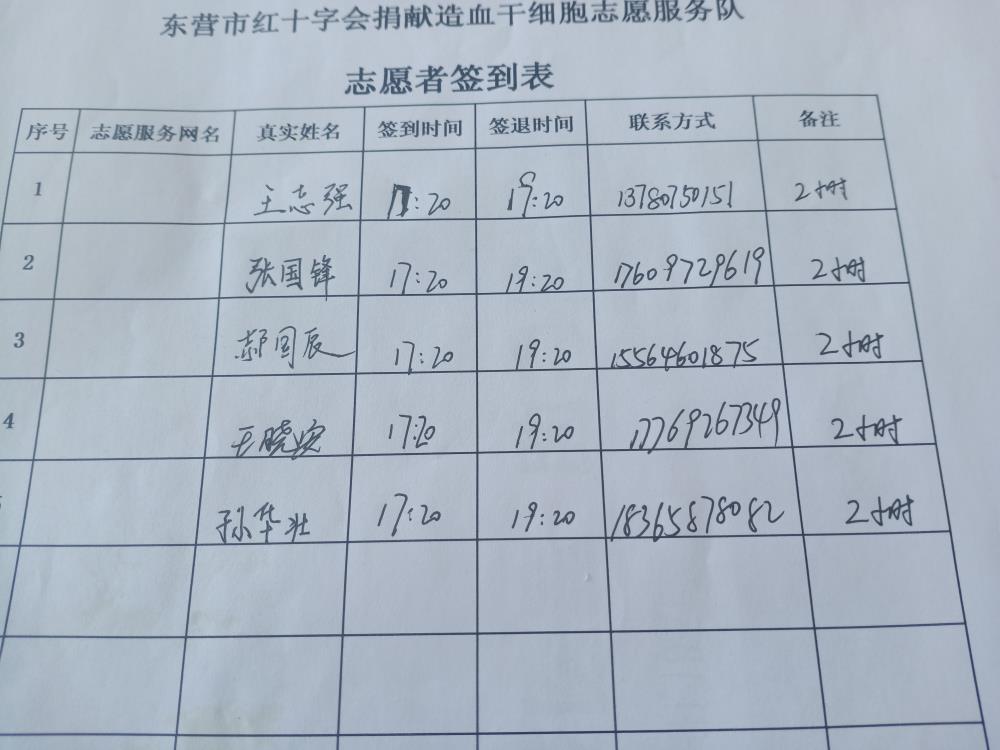 东营市红十字会捐献造血干细胞志愿服务队
志愿者签到表
序号 志愿服务网名 真实姓名 签到时间 签退时间 联系方式 备注
1 王志强 17:20 19:20 13780750151 2小时
2 张国锋 17:20 19:20 17609729619 2小时
3 郝国辰 17:20 19:20 15564601875 2小时
4 王晓安 17:20 19:20 17769267349 2小时
孙华壮 17:20 19:20 18365878082 2小时